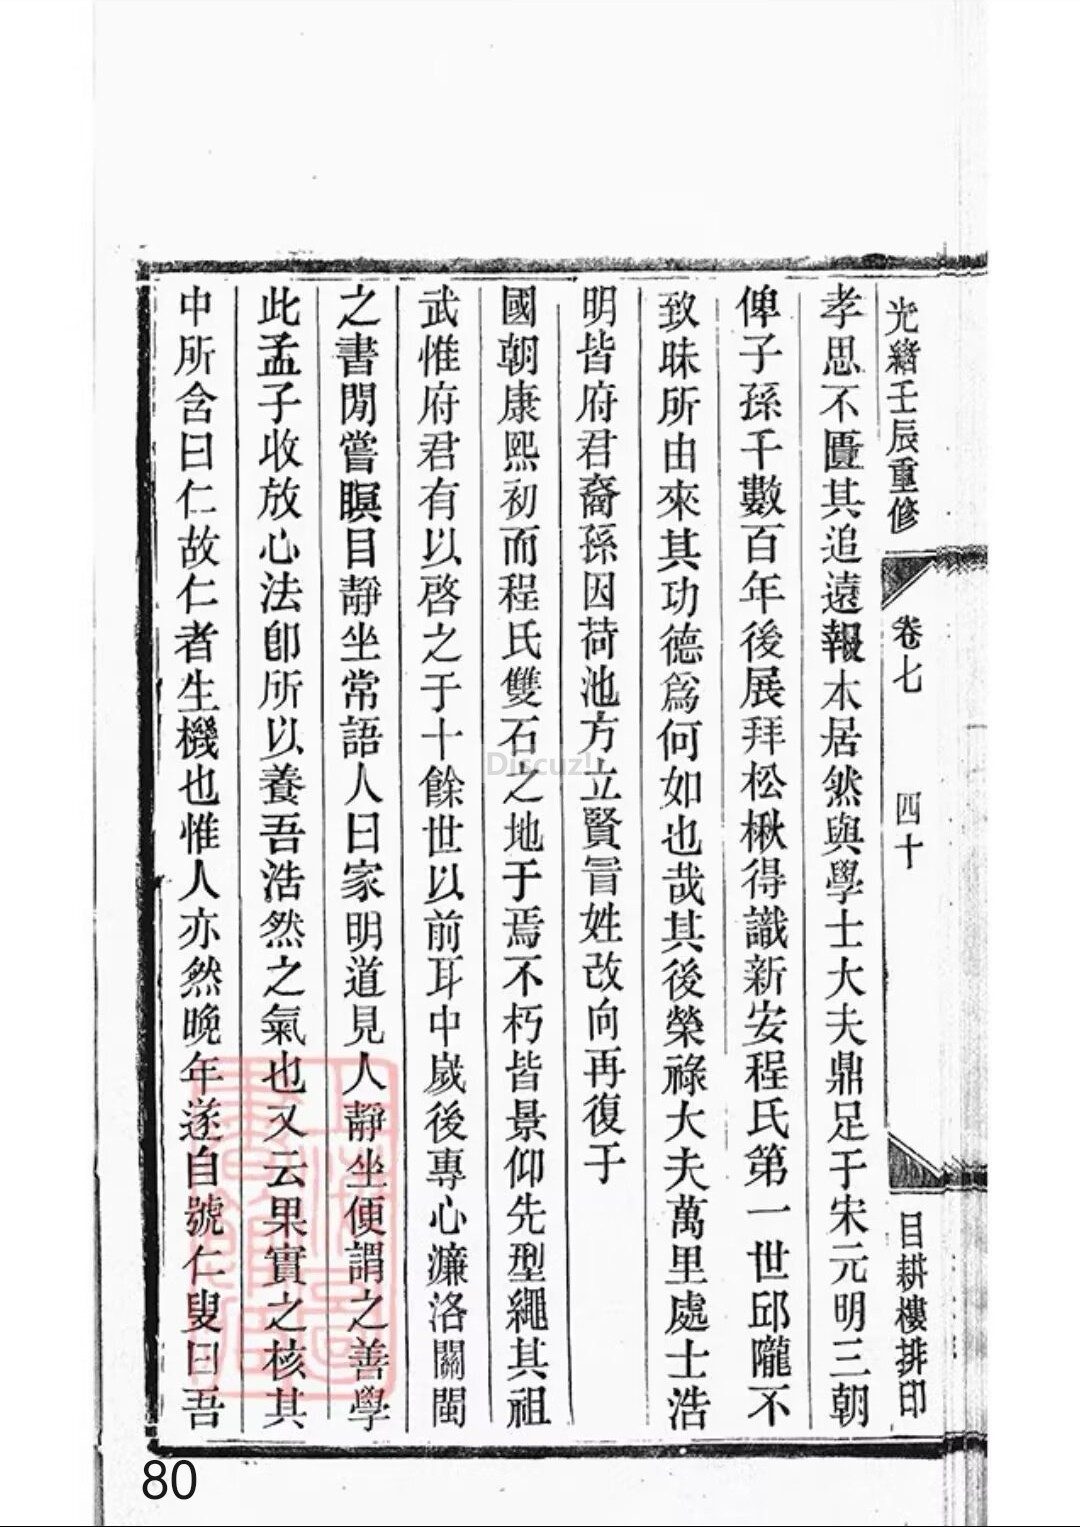 光緒壬辰重修
卷七
四十
目耕樓排印
孝思不匱其追遠報本居然與學士大夫鼎足于宋元明三朝
俾子孫千數百年後展拜松楸得識新安程氏第一世邱隴不
致昧所由來其功德爲何如也哉其後榮祿大夫萬里處士浩
明皆府君裔孫因荷池方立賢冒姓改向再復于
國朝康熙初而程氏雙石之地于焉不朽皆景仰先型繩其祖
武惟府君有以啓之于十餘世以前耳中歲後專心濂洛關閩
之書閒嘗瞑目靜坐常語人曰家明道見人靜坐便謂之善學
此孟子收放心法卽所以養吾浩然之氣也又云果實之核其
中所含曰仁故仁者生機也惟人亦然晚年遂自號仁叟曰吾
Discuz!
80